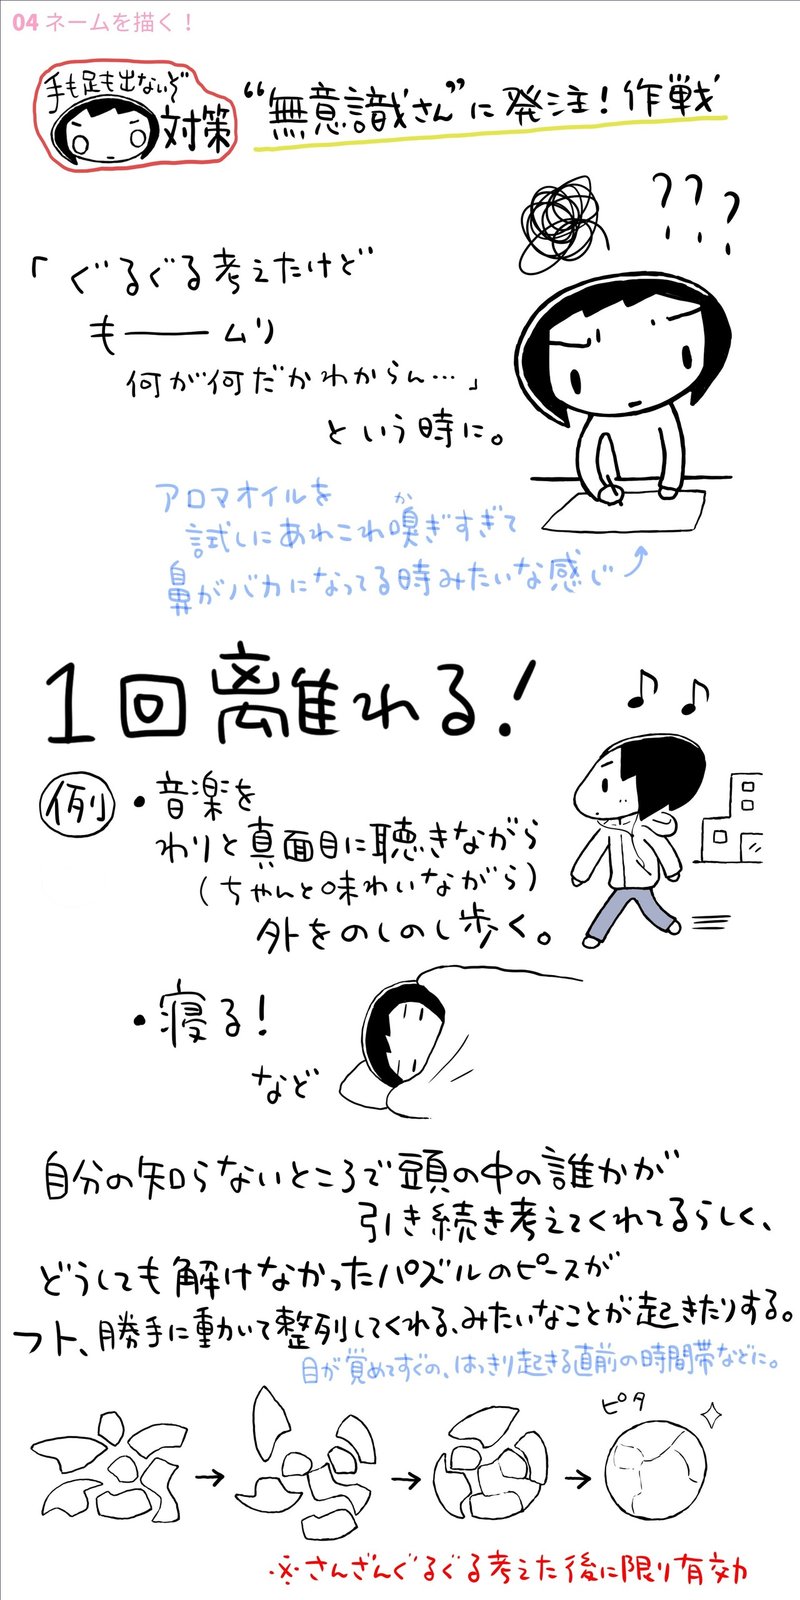 04 ネームを描く！
手も足も出ないぞ
対策
“無意識さん”に発注！作戦
???
「ぐるぐる考えたけど
も――ムリ
何が何だかわからん…」
という時に。
アロマオイルを
試しにあれこれ嗅ぎすぎて
か
鼻がバカになってる時みたいな感じ
1回離れる！
例
・音楽を
わりと真面目に聴きながら
(ちゃんと味わいながら)
外をのしのし歩く。
・寝る！
など
自分の知らないところで頭の中の誰かが
引き続き考えてくれてるらしく、
どうしても解けなかったパズルのピースが
フト、勝手に動いて整列してくれる、みたいなことが起きたりする。
目が覚めてすぐの、はっきり起きる直前の時間帯などに。
ピタ
※さんざんぐるぐる考えた後に限り有効